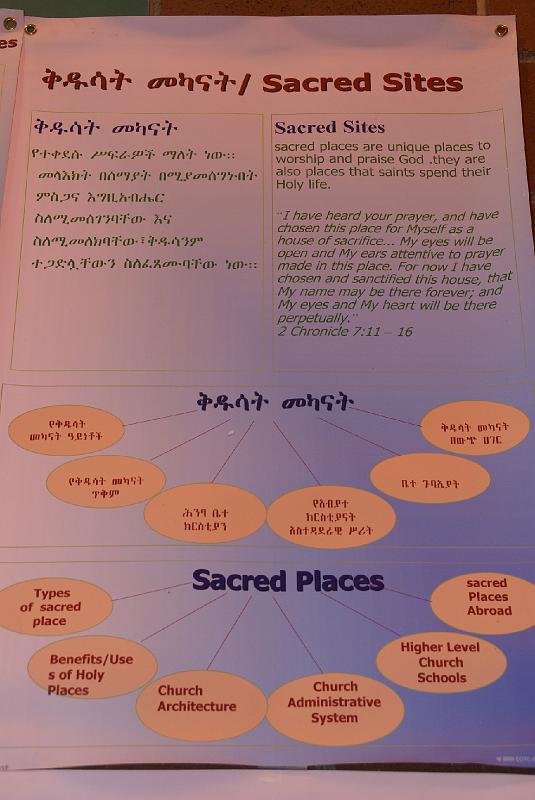 es
ቅዱሳት መካናት/ Sacred Sites
ቅዱሳት መካናት
የተቀደሱ ሥፍራዎች ማለት ነው፡፡
መላእክት በሰማያት በሚያመሰግኑበት
ምስጋና እግዚአብሔር
ስለሚመሰገንባቸው እና
ስለሚመለክባቸው፣ቅዱሳንም
ተጋድሏቸውን ስለፈጸሙባቸው ነው፡፡
Sacred Sites
sacred places are unique places to
worship and praise God .they are
also places that saints spend their
Holy life.
"I have heard your prayer, and have
chosen this place for Myself as a
house of sacrifice... My eyes will be
open and My ears attentive to prayer
made in this place. For now I have
chosen and sanctified this house, that
My name may be there forever; and
My eyes and My heart will be there
perpetually."
2 Chronicle 7:11 – 16
ቅዱሳት መካናት
የቅዱሳት
መካናት ዓይነቶች
የቅዱሳት መካናት
ጥቅም
ሕንፃ ቤተ
ክርስቲያን
የአብያተ
ክርስቲያናት
አስተዳደራዊ ሥሪት
ቤተ ጉባኤያት
ቅዱሳት መካናት
በውጭ ሀገር
Sacred Places
Types
of sacred
place
Benefits/Use
s of Holy
Places
Church
Architecture
Church
Administrative
System
Higher Level
Church
Schools
sacred
Places
Abroad